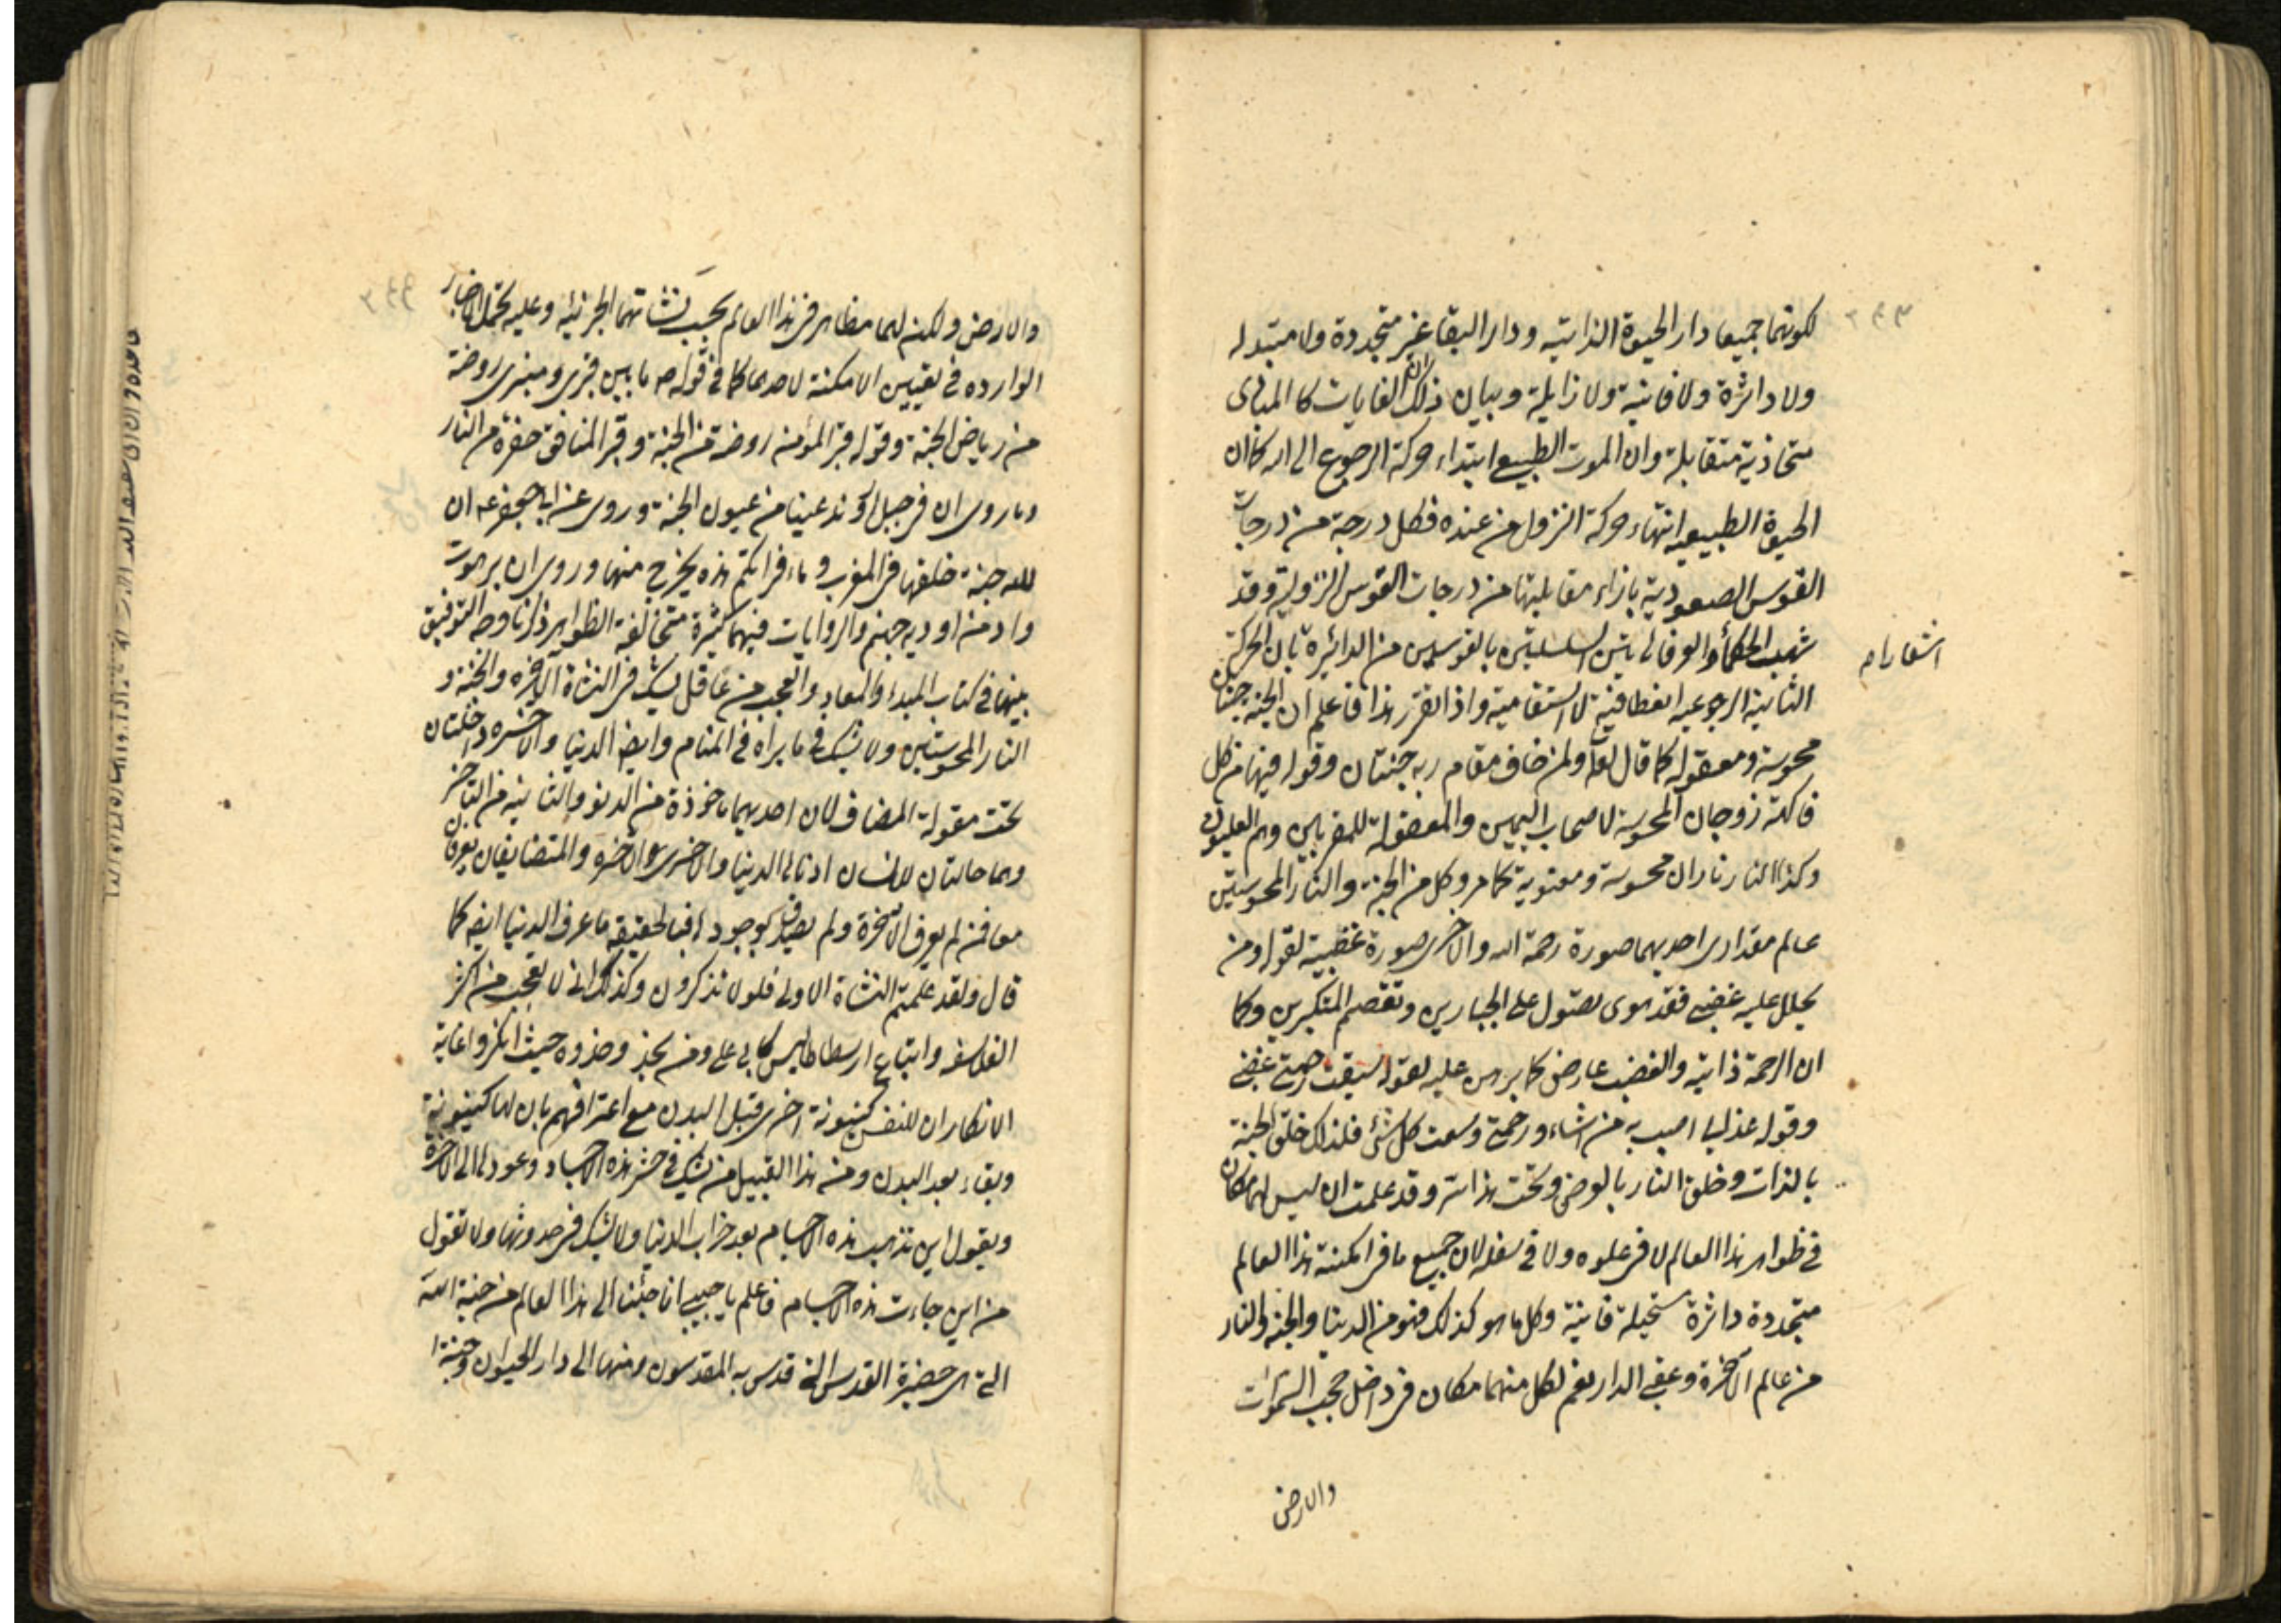 لكونهما جميعا دار الحيوة الذاتيه و دار البقا غير متجددة ولا متبدله
ولا داثرة ولا فانية ولا زايلة وبيان ذلك ان الغايات كالمبادى
متحاذية متقابلة وان الموت الطبيعى ابتداء حركة الرجوع الى الله كما ان
الحيوة الطبيعيه انتهاء حركة النزول من عنده فكل درجة من درجات
القوس الصعودية بازاء مقابلتها من درجات القوس النزولية وقد
شبه الحكماء والعرفا هاتين السلسلتين بالقوسين من الدائرة بان الحركة
اشعارا م
الثانية الرجوعيه انعطافية لا استقامية واذا تقرر هذا فاعلم ان الجنة جنتان
محسوسة ومعقوله كما قال تعا ولمن خاف مقام ربه جنتان وقوله فيهما من كل
فاكهة زوجان المحسوسة لاصحاب اليمين والمعقولة للمقربين وهم العليون
وكذا النار ناران محسوسة ومعنوية كما مر وكل من الجنة والنار المحسوستين
عالم مقدارى احديهما صورة رحمة الله والاخرى صورة غضبه لقوله ومن
يحلل عليه غضبى فقد هوى تصول على الجبارين وتقصم المتكبرين وكما
ان الرحمة ذاتية والغضب عارض كما برهن عليه لقوله سبقت رحمتى غضبى
وقوله عذابى اصيب به من اشاء ورحمتى وسعت كل شئ فلذلك خلق الجنة
بالذات وخلق النار بالعرض وتحت هذا سر وقد علمت ان ليس لهما مكان
فى ظواهر هذا العالم لا فى علوه ولا فى سفله لان جميع ما فى امكنة هذا العالم
متجددة داثرة مستحيلة فانية وكل ما هو كذلك فهو من الدنيا والجنة والنار
من عالم الاخرة وعقبى الدار نعم لكل منهما مكان فى داخل حجب السموات
والارض
والارض ولكن لهما مظاهر فى هذا العالم بحسب نشاتهما الجزئيه وعليه تحمل الاخبار
الوارده فى تعيين الامكنة لاحدهما كما فى قوله ص ما بين قبرى ومنبرى روضة
من رياض الجنة وقوله قبر المؤمن روضة من الجنة وقبر المنافق حفرة من النار
وما روى ان فى جبل اروند عينا من عيون الجنة وروى عن ابا جعفر عه ان
لله جنة خلقها فى المغرب وماء فراتكم هذه يخرج منها وروى ان برهوت
واد من اوديه جهنم والروايات فيهما كثيرة متخالفة الظواهر ذكرنا وجه التوفيق
بينها فى كتاب المبدء والمعاد والعجب من عاقل يشك فى النشاة الاخره والجنة و
النار المحسوستين ولا يشك فى ما يراه فى المنام وايضا الدنيا والاخره داخلتان
تحت مقولة المضاف لان احديهما ماخوذة من الدنو والثانية من التاخر
وهما حالتان للانسان ادناها الدنيا والاخرى هو الاخره والمتضايفان يعرفان
معا فمن لم يعرف الاخرة ولم يصدق بوجودها فبالحقيقه ما عرف الدنيا ايضا كما
قال ولقد علمتم النشاة الاولى فلولا تذكرون وكذلك انى لاتعجب من اكثر
الفلاسفه واتباع ارسطاطاليس كابى على ومن يحذو حذوه حيث انكروا غاية
الانكار ان للنفس كينونة اخرى قبل البدن مع اعترافهم بان لها كينونة
وبقاء بعد البدن ومن هذا القبيل من يشك فى حشر هذه الاجساد وعودها الى الاخرة
ويقول اين تذهب هذه الاجسام بعد خراب الدنيا ولا يشك فى حدوثها ولا تقول
من اين جاءت هذه الاجسام فاعلم يا حبيبى انا جئنا الى هذا العالم من جنة الله
التى هى حضيرة القدس التى قدس به المقدسون ومنها الى دار الحيوان وجنة ا